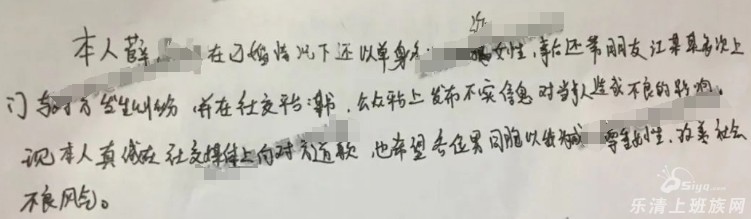 本人薛 在已婚情况下还以单身 女性,事后还带朋友江某某多次上
门与对方发生纠纷 并在社交平台 公众平台上发布不实信息 对当事人造成不良的影响。
现本人真诚在社交媒体上向对方道歉,也希望各位男同胞以我为戒 尊重女性,改善社会
不良风气。
8Siyo.com
乐清上班族网